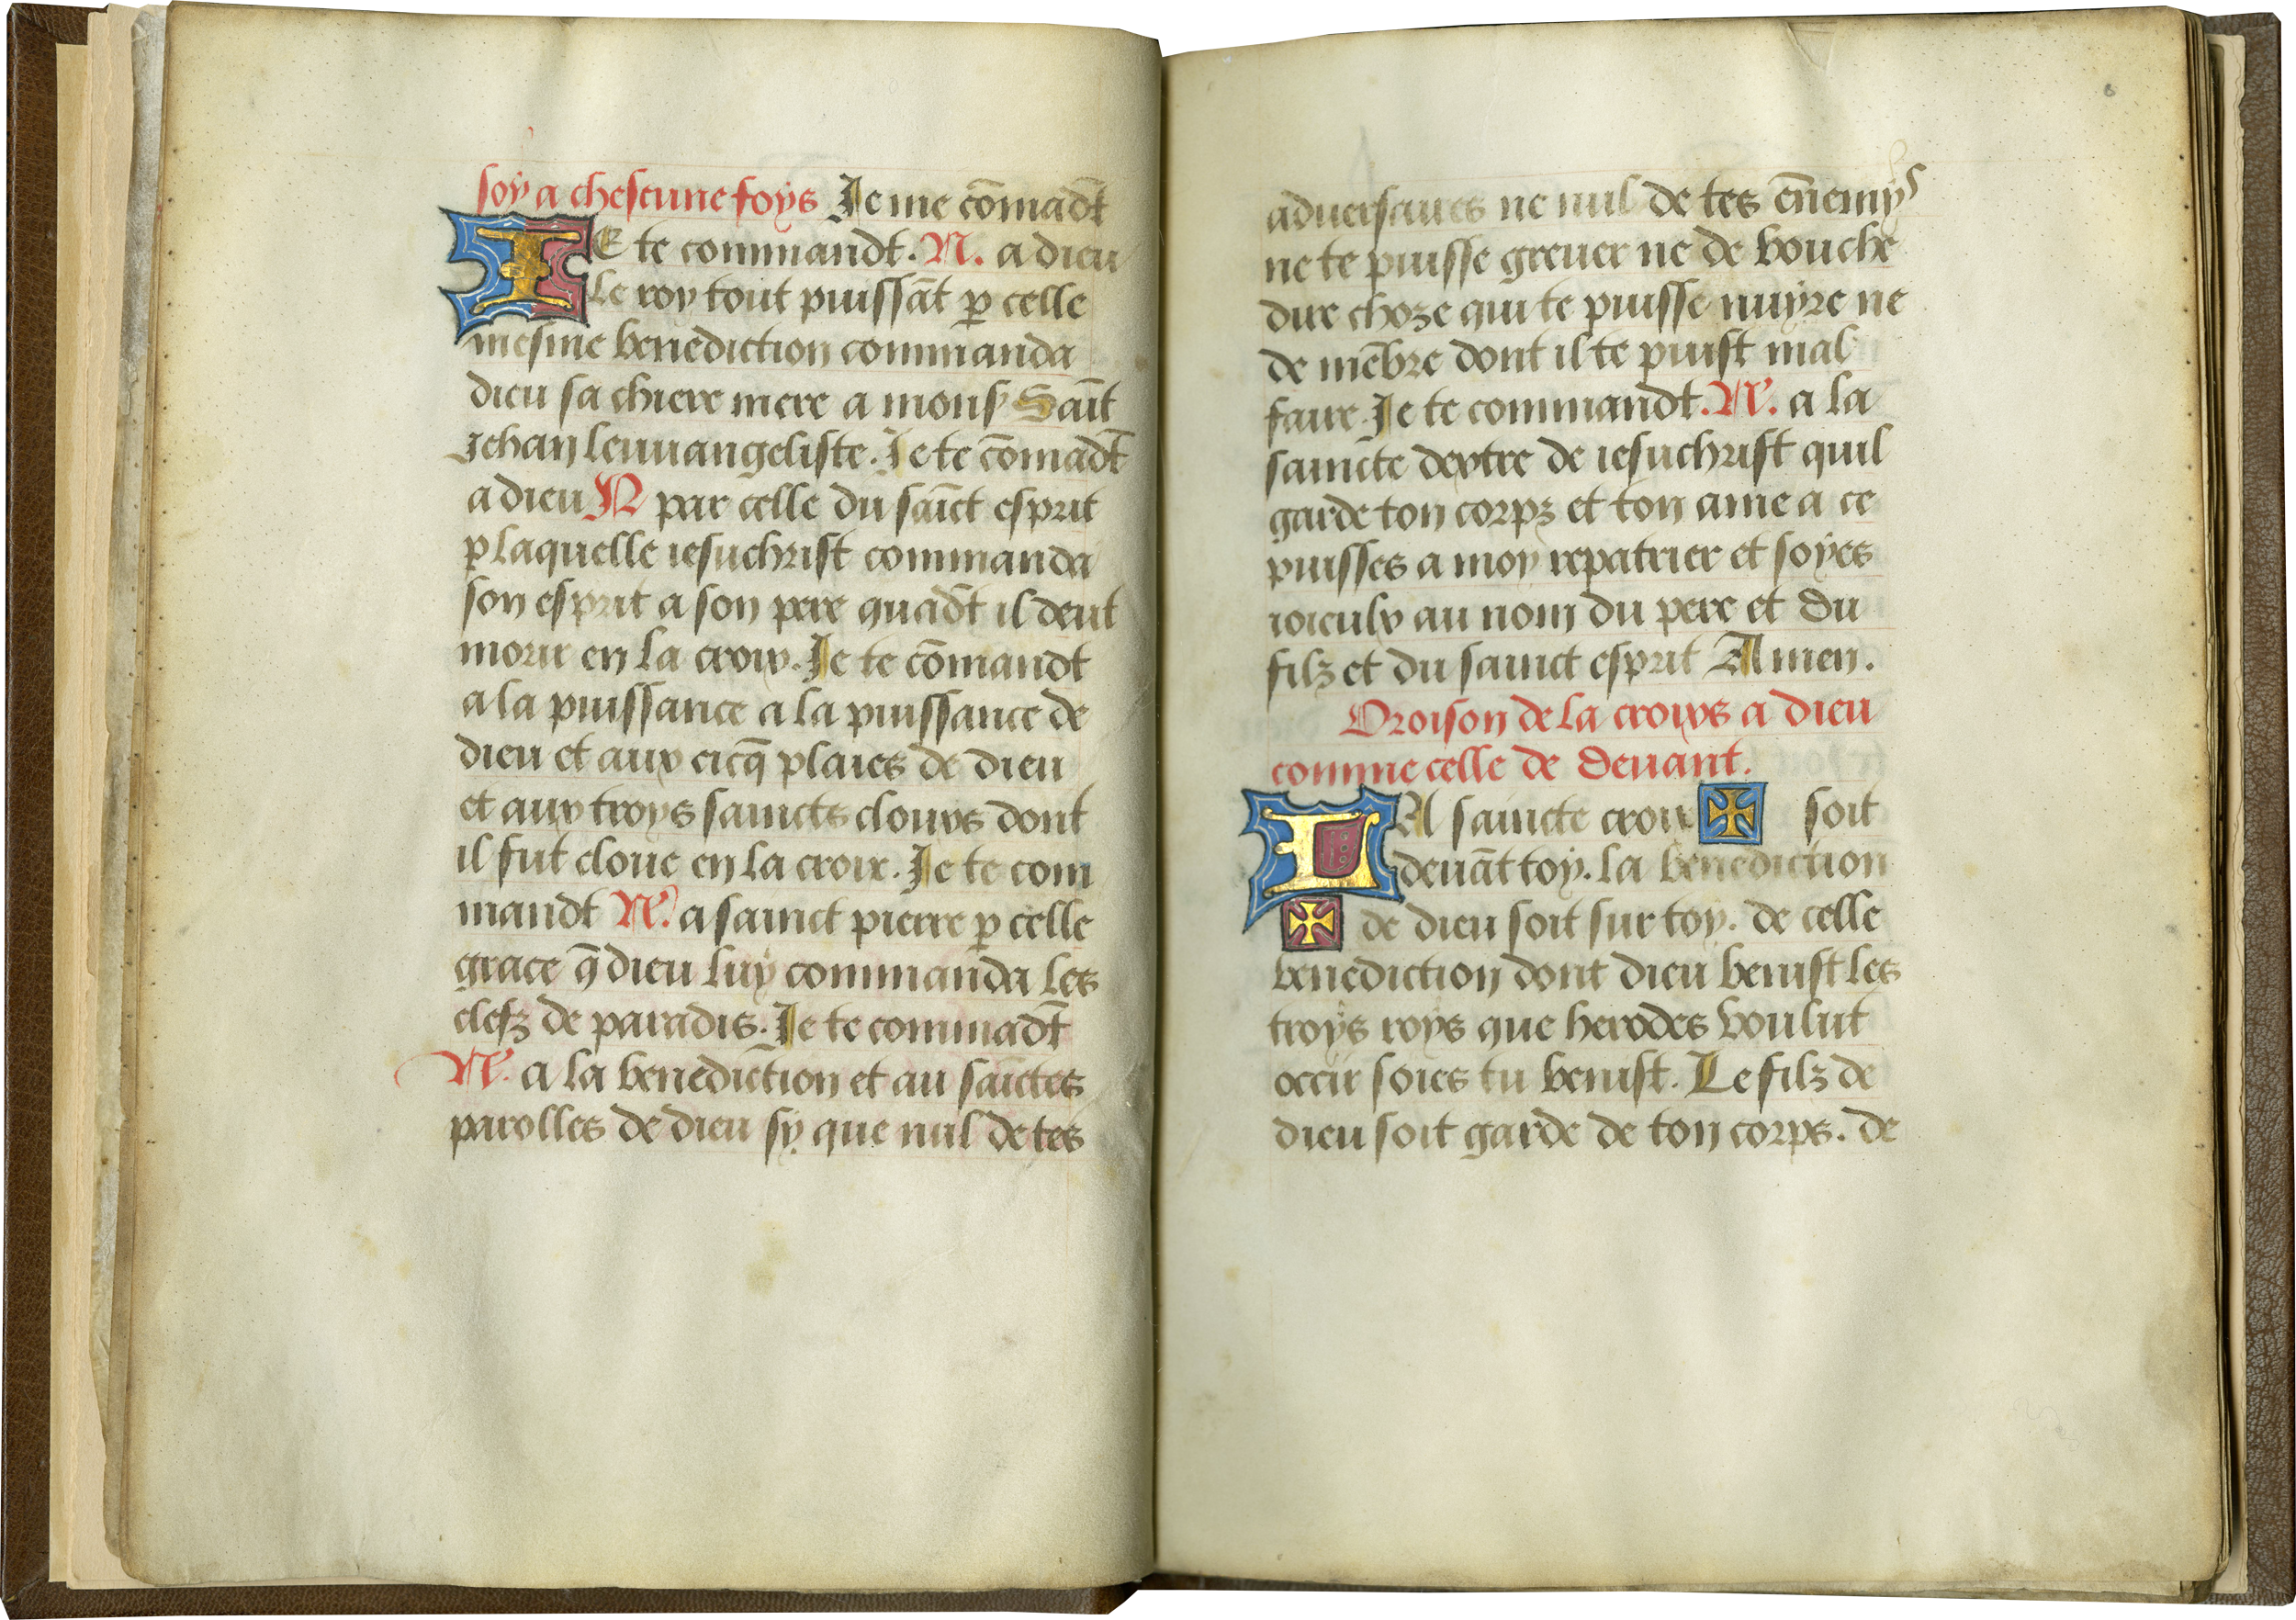 soy a chescune foys Je me cōmādt
JE te commandt. N. a dieu
le roy tout puissāt ꝑ celle
mesme benediction commanda
dieu sa chiere mere a mons Saīt
Jehan leuuangeliste. Je te cōmādt
a dieu N par celle du saīct esprit
ꝑ laquelle iesuchrist commanda
son esprit a son pere quādt il deut
morir en la croix. Je te cōmandt
a la puissance a la puissance de
dieu et aux cicq̄ plaies de dieu
et aux troys saincts clouxs dont
il fut cloue en la croix. Je te com
mandt N. a sainct pierre ꝑ celle
grace q̄ dieu luy commanda les
clefz de paradis. Je te commādt
N. a la benediction et au saīctes
parolles de dieu sy que nul de tes
aduersaires ne nul de tes en̄emys
ne te puisse greuer ne de bouche
dire choze qui te puisse nuyre ne
de mēbre dont il te puist mal
faire. Je te commandt. N. a la
saincte dextre de iesuchrist quil
garde ton corpz et ton ame a ce
puisses a moy repatrier et soyes
ioieulx au nom du pere et du
filz et du sainct esprit Amen.
Oroison de la croixs a dieu
comme celle de deuant.
LA saincte croix ✠ soit
deuāt toy. la benediction
✠ de dieu soit sur toy. de celle
benediction dont dieu benist les
troys roys que herodes voulut
occir soies tu benist. Le filz de
dieu soit garde de ton corps. de